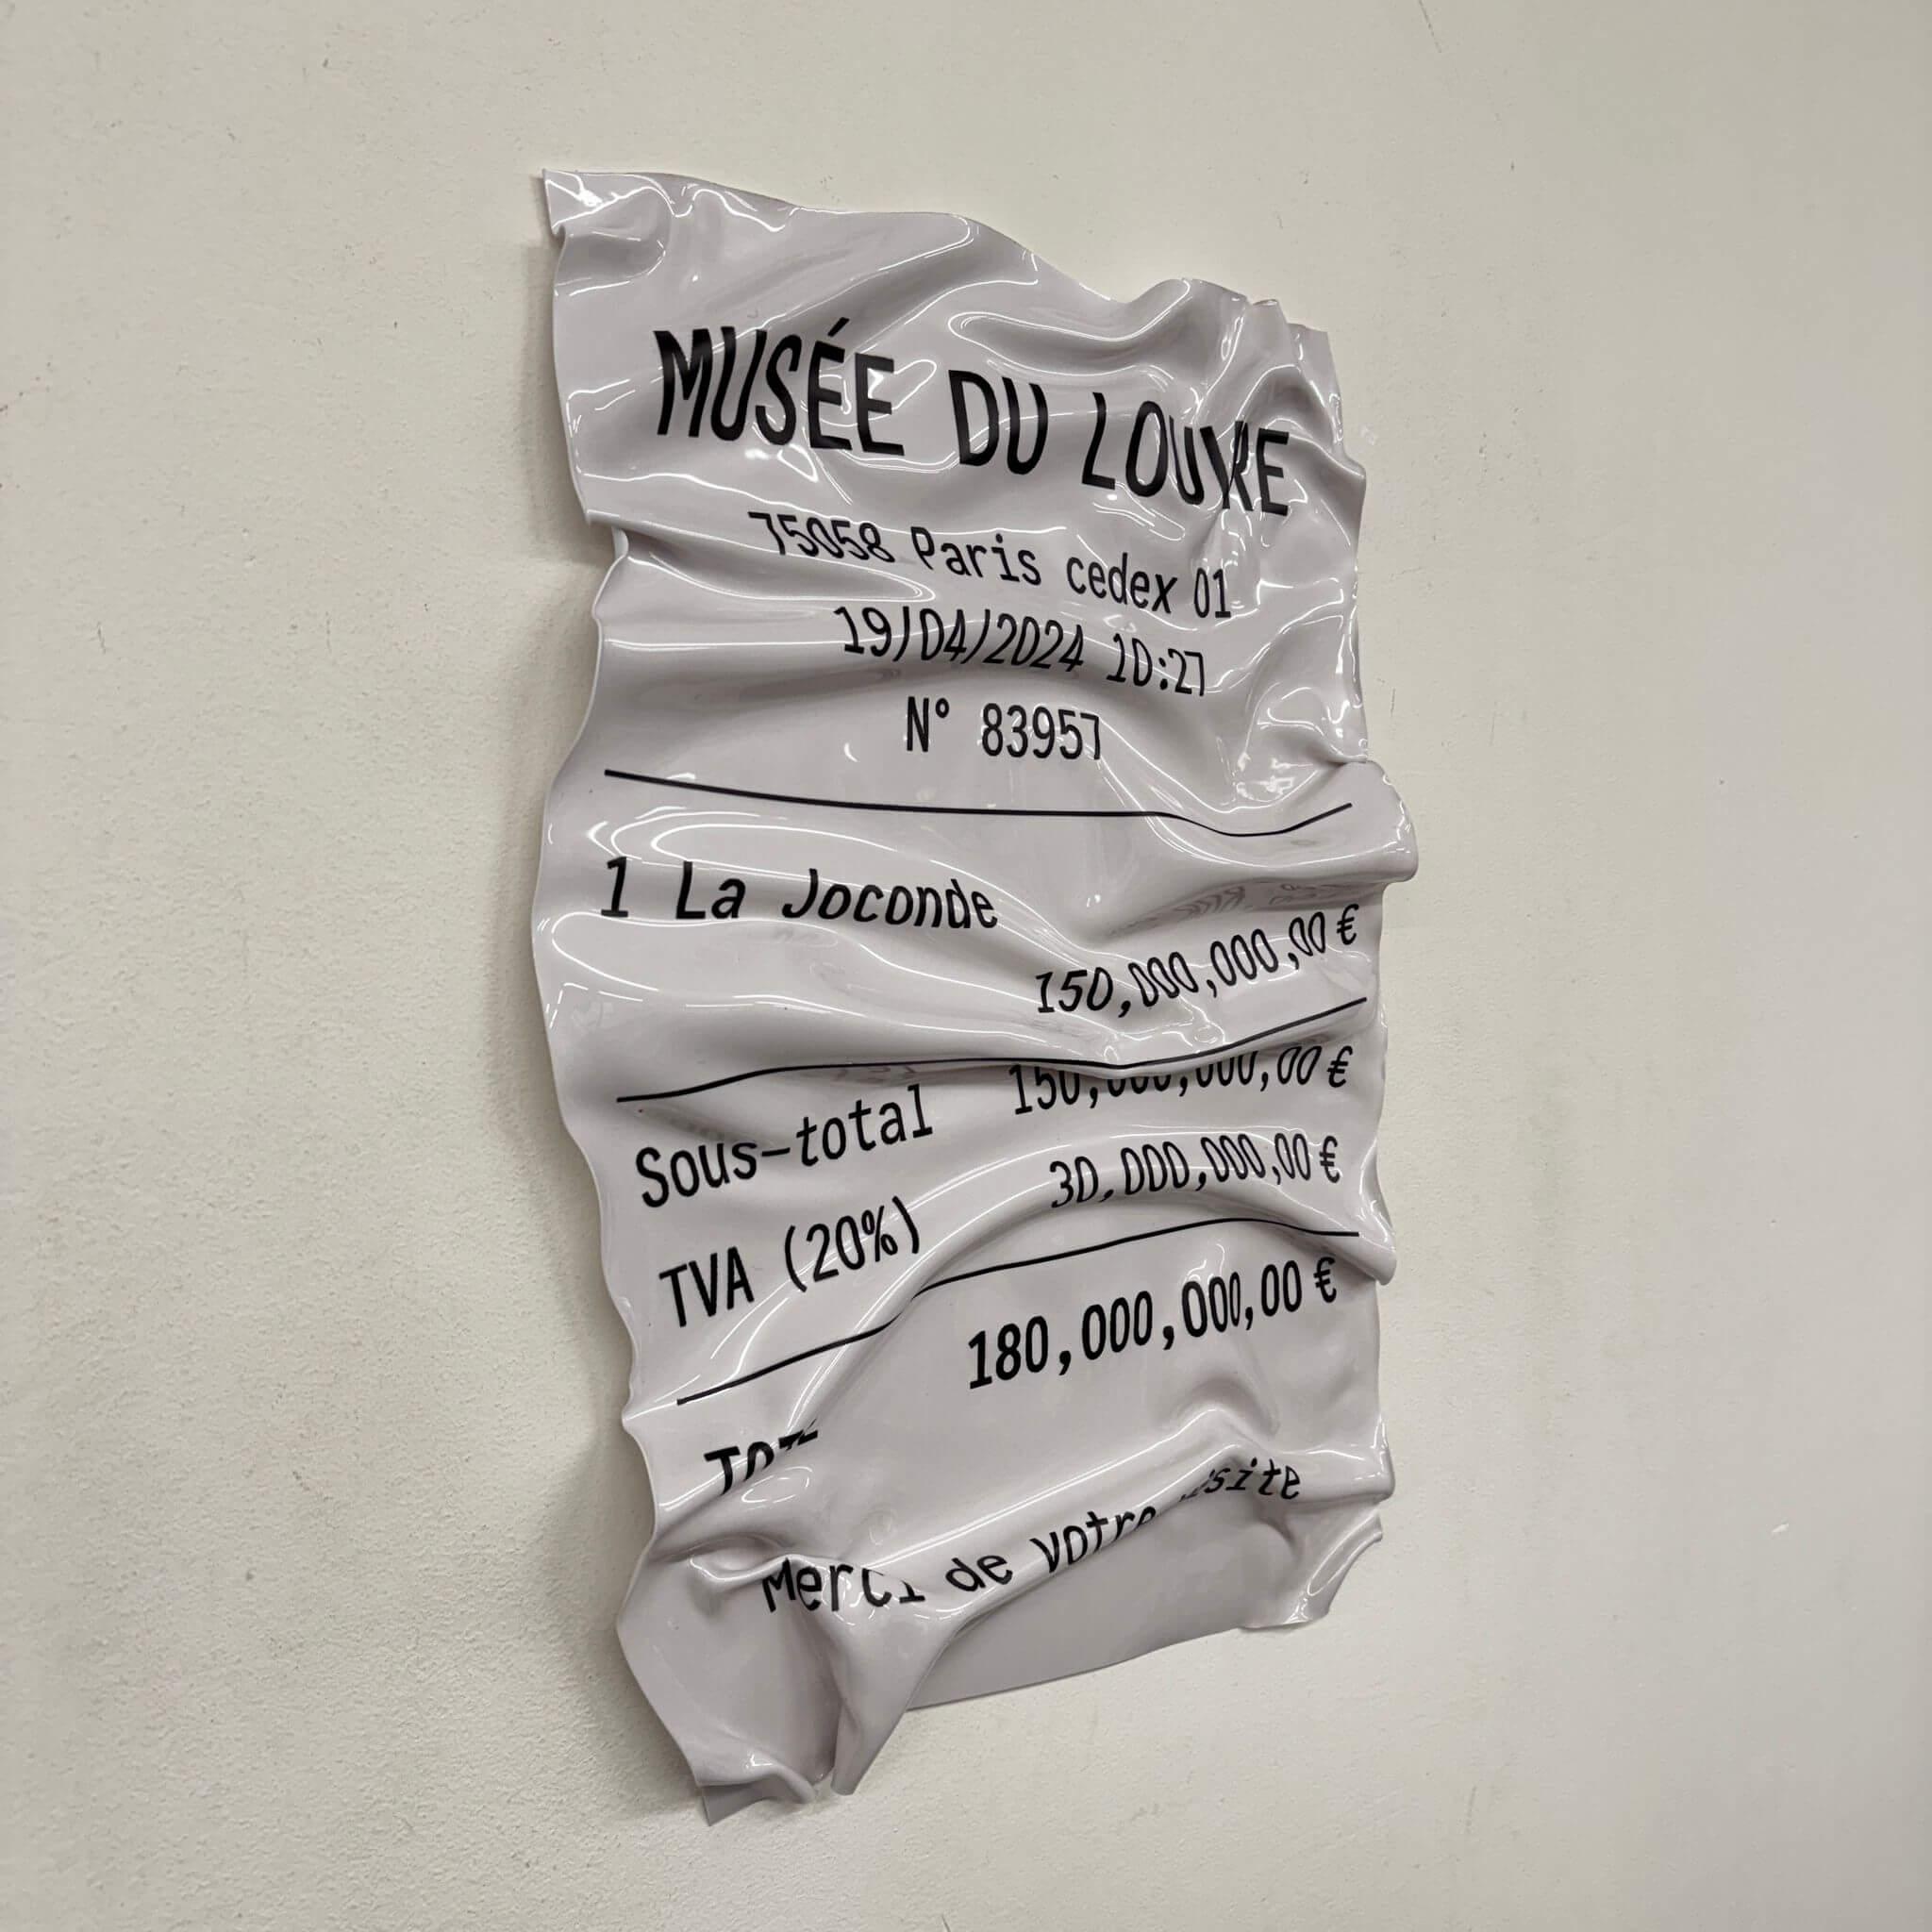 MUSÉE DU LOUVRE
75058 Paris cedex 01
19/04/2024 10:27
N° 83957
1 La Joconde
150,000,000,00 €
Sous-total 150,000,000,00 €
TVA (20%) 30,000,000,00 €
180,000,000,00 €
Merci de votre